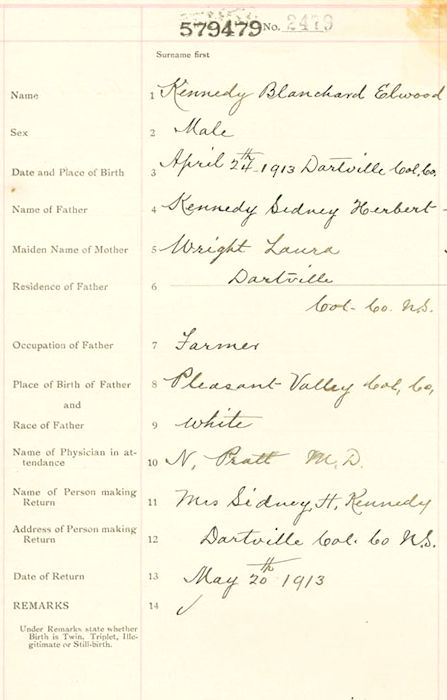 579479 No. 2479
Surname first
Name 1 Kennedy Blanchard Elwood
Sex 2 Male
Date and Place of Birth 3 April 24th 1913 Dartville Col, Co,
Name of Father 4 Kennedy Sidney Herbert
Maiden Name of Mother 5 Wright Laura
Residence of Father 6 Dartville
Col. Co. N.S.
Occupation of Father 7 Farmer
Place of Birth of Father 8 Pleasant Valley Col, Co,
and
Race of Father 9 White
Name of Physician in at-
tendance 10 N, Pratt M. D.
Name of Person making
Return 11 Mrs Sidney, H. Kennedy
Address of Person making
Return 12 Dartville Col. Co N.S.
Date of Return 13 May 20th 1913
REMARKS 14 ✓
Under Remarks state whether
Birth is Twin, Triplet, Ille-
gitimate or Still-birth.